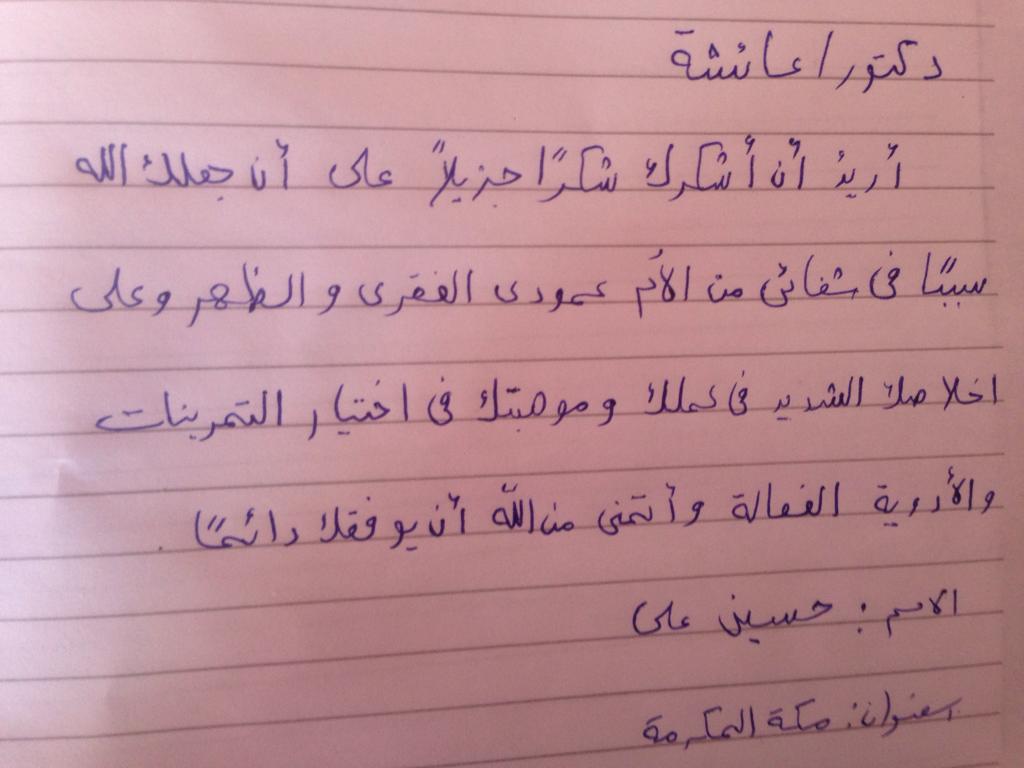 دكتور/عائشة
أريدُ أن أشكرك شكرًا جزيلاً على أن جعلك الله
سببًا فى شفائى من الألم عمودى الفقرى والظهر وعلى
اخلاصك الشديد فى عملك وموهبتك فى اختيار التمرينات
والأدوية الفعالة وأتمنى من الله أن يوفقك دائمًا.
الاسم: حسين على
عنوان: مكة المكرمة